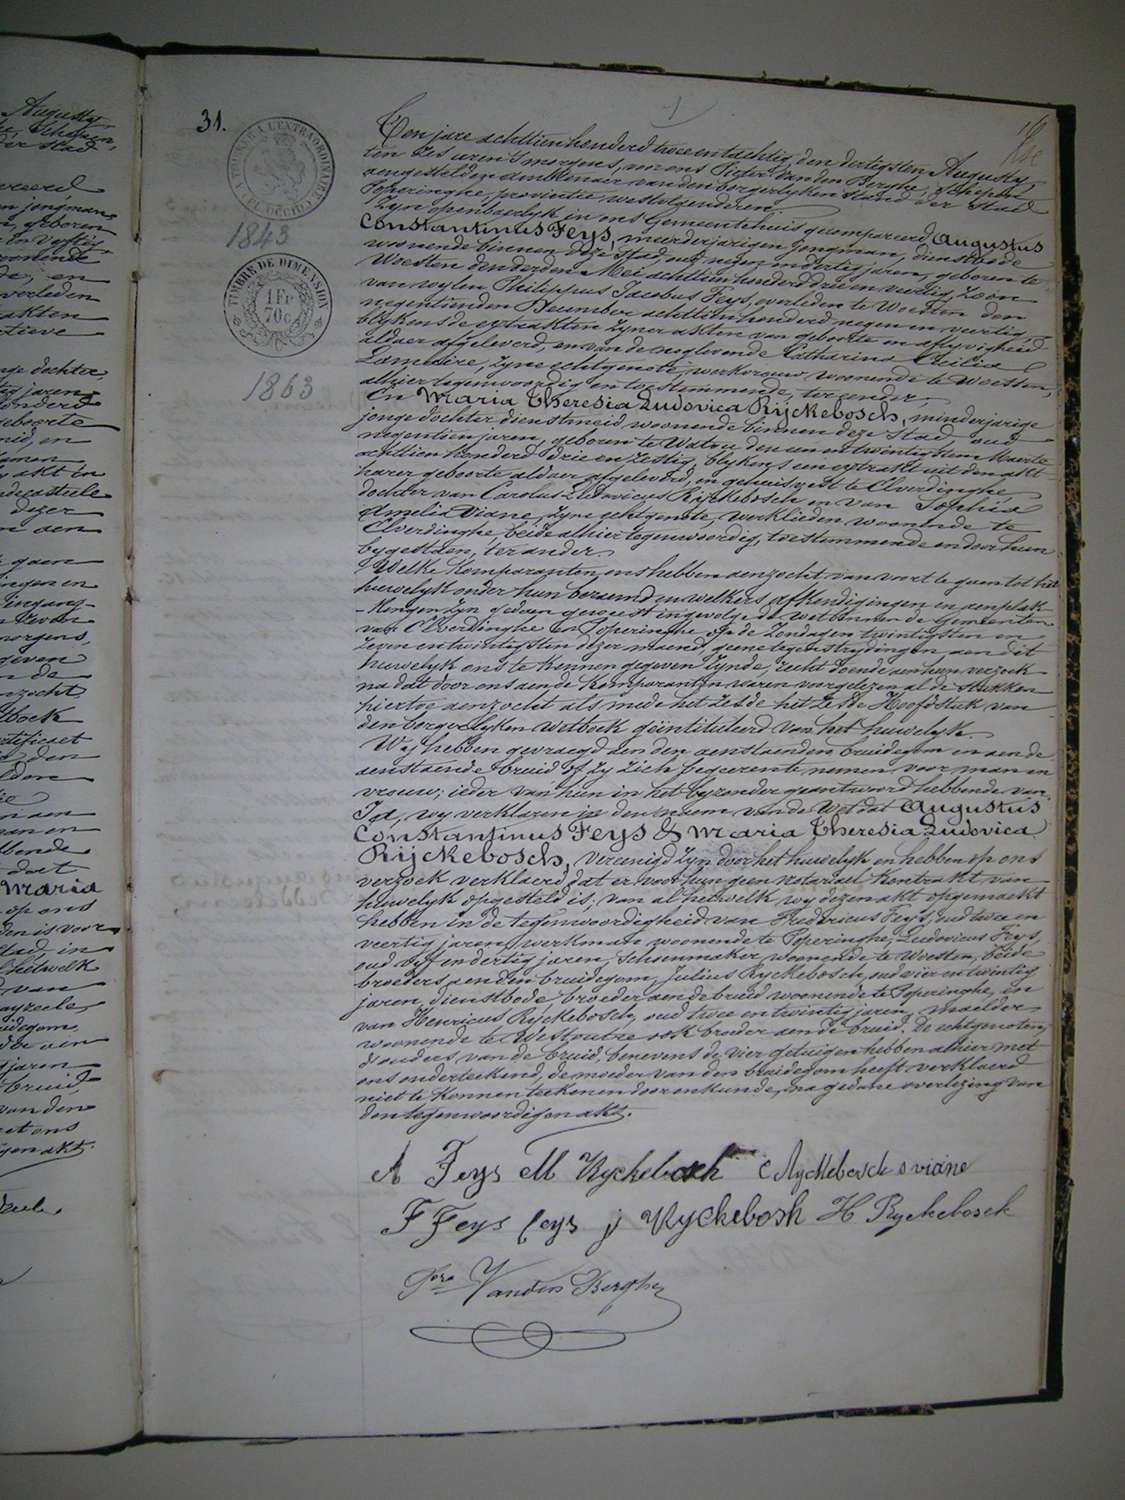 31.
A TIMBRER A L'EXTRAORDINAIRE
1843
TIMBRE DE DIMENSION
1 Fr
70 c
1863
Ten jare achttien honderd twee en tachtig, den dertigsten Augusty
ten zes uren 's morgens, voor ons Pieter Van den Berghe, Schepen
aengestelden ambtenaer van den borgerlyken stand der Stad
Poperinghe, provintie westvlaenderen.
Zyn openbaerlyk in ons Gemeentehuis gekompareerd Augustus
Constantinus Feys, meerderjarigen jongman, dienstbode
woonende binnen deze Stad, oud negen en dertig jaren, geboren te
Woesten den derden Mei achttien honderd drie en veertig, Zoon
van wylen Philippus Jacobus Feys, overleden te Woesten den
negentienden December achttien honderd negen en veertig,
blykens de extrakten zyner akten van geboorte en aflyvigheid
aldaer afgeleverd, en van de nog levende Catharina Cecilia
Lameire, zyne echtgenote, werkvrouw woonende te Woesten,
alhier tegenwoordig en toestemmende, ter eender.
En Maria Theresia Ludovica Rijckebosch, minderjarige
jonge dochter dienstmeid, woonende binnen deze Stad, oud
negentien jaren, geboren te Watou den een en twintigsten Maerte
achttien honderd drie en zestig, blykens een extrakt uit den akt
harer geboorte aldaer afgeleverd, en gehuisvest te Elverdinghe
dochter van Carolus Ludovicus Rijckebosch en van Sophia
Amelia Viane, zyne echtgenote, werklieden woonende te
Elverdinghe, beide alhier tegenwoordig, toestemmende en door hun
bygestaen, ter ander.
Welke komparanten ons hebben aenzocht van voort te gaen tot het
huwelyk onder hun beraemd en welkers afkondigingen en aenplak-
-kingen zyn gedaen geweest ingevolge de wet binnen de Gemeenten
van Elverdinghe en Poperinghe op de Zondagen twintigsten en
zeven en twintigsten dezer maend, geene tegenstrydingen aen dit
huwelyk ons te kennen gegeven zynde, recht doende aen hun verzoek
na dat door ons aen de komparanten waren voorgelezen al de stukken
hiertoe aenzocht als mede het zesde het zesde Hoofdstuk van
den borgerlyken wetboek geïntituleerd van het huwelyk.
Wij hebben gevraegd aen den aenstaenden bruidegom en aen de
aenstaende bruid of zy zich begeeren te nemen voor man en
vrouw; ieder van hun in het byzonder geantwoord hebbende van
Ja, wy verklaren in den naem van de wet dat Augustus
Constantinus Feys & Maria Theresia Ludovica
Rijckebosch, vereenigd zyn door het huwelyk en hebben op ons
verzoek verklaerd dat er voor hun geen notariael kontrakt van
huwelyk opgesteld is; van al hetwelk wy dezen akt opgemaekt
hebben in de tegenwoordigheid van Fredericus Feys, oud twee en
veertig jaren, werkman woonende te Poperinghe, Ludovicus Feys,
oud vyf en dertig jaren, schoenmaker woonende te Woesten, beide
broeders aen den bruidegom, Julius Ryckebosch, oud vier en twintig
jaren, dienstbode, broeder aen de bruid woonende te Poperinghe, en
van Henricus Ryckebosch, oud twee en twintig jaren, maelder
woonende te Westoutre ook broeder aen de bruid. De echtgenoten,
d'ouders van de bruid, benevens de vier getuigen hebben alhier met
ons onderteekend, de moeder van den bruidegom heeft verklaerd
niet te konnen teekenen door onkunde, na gedane overlezing van
den tegenwoordigen akt.
A Feys M Ryckebosch C Ryckebosch s viane
F Feys feys j Ryckebosh H Ryckebosch
Vanden Berghe